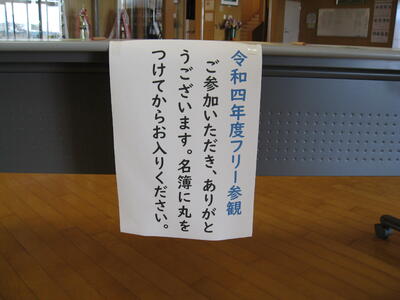 令和四年度フリー参観
ご参加いただき、ありがと
うございます。名簿に丸を
つけてからお入りください。